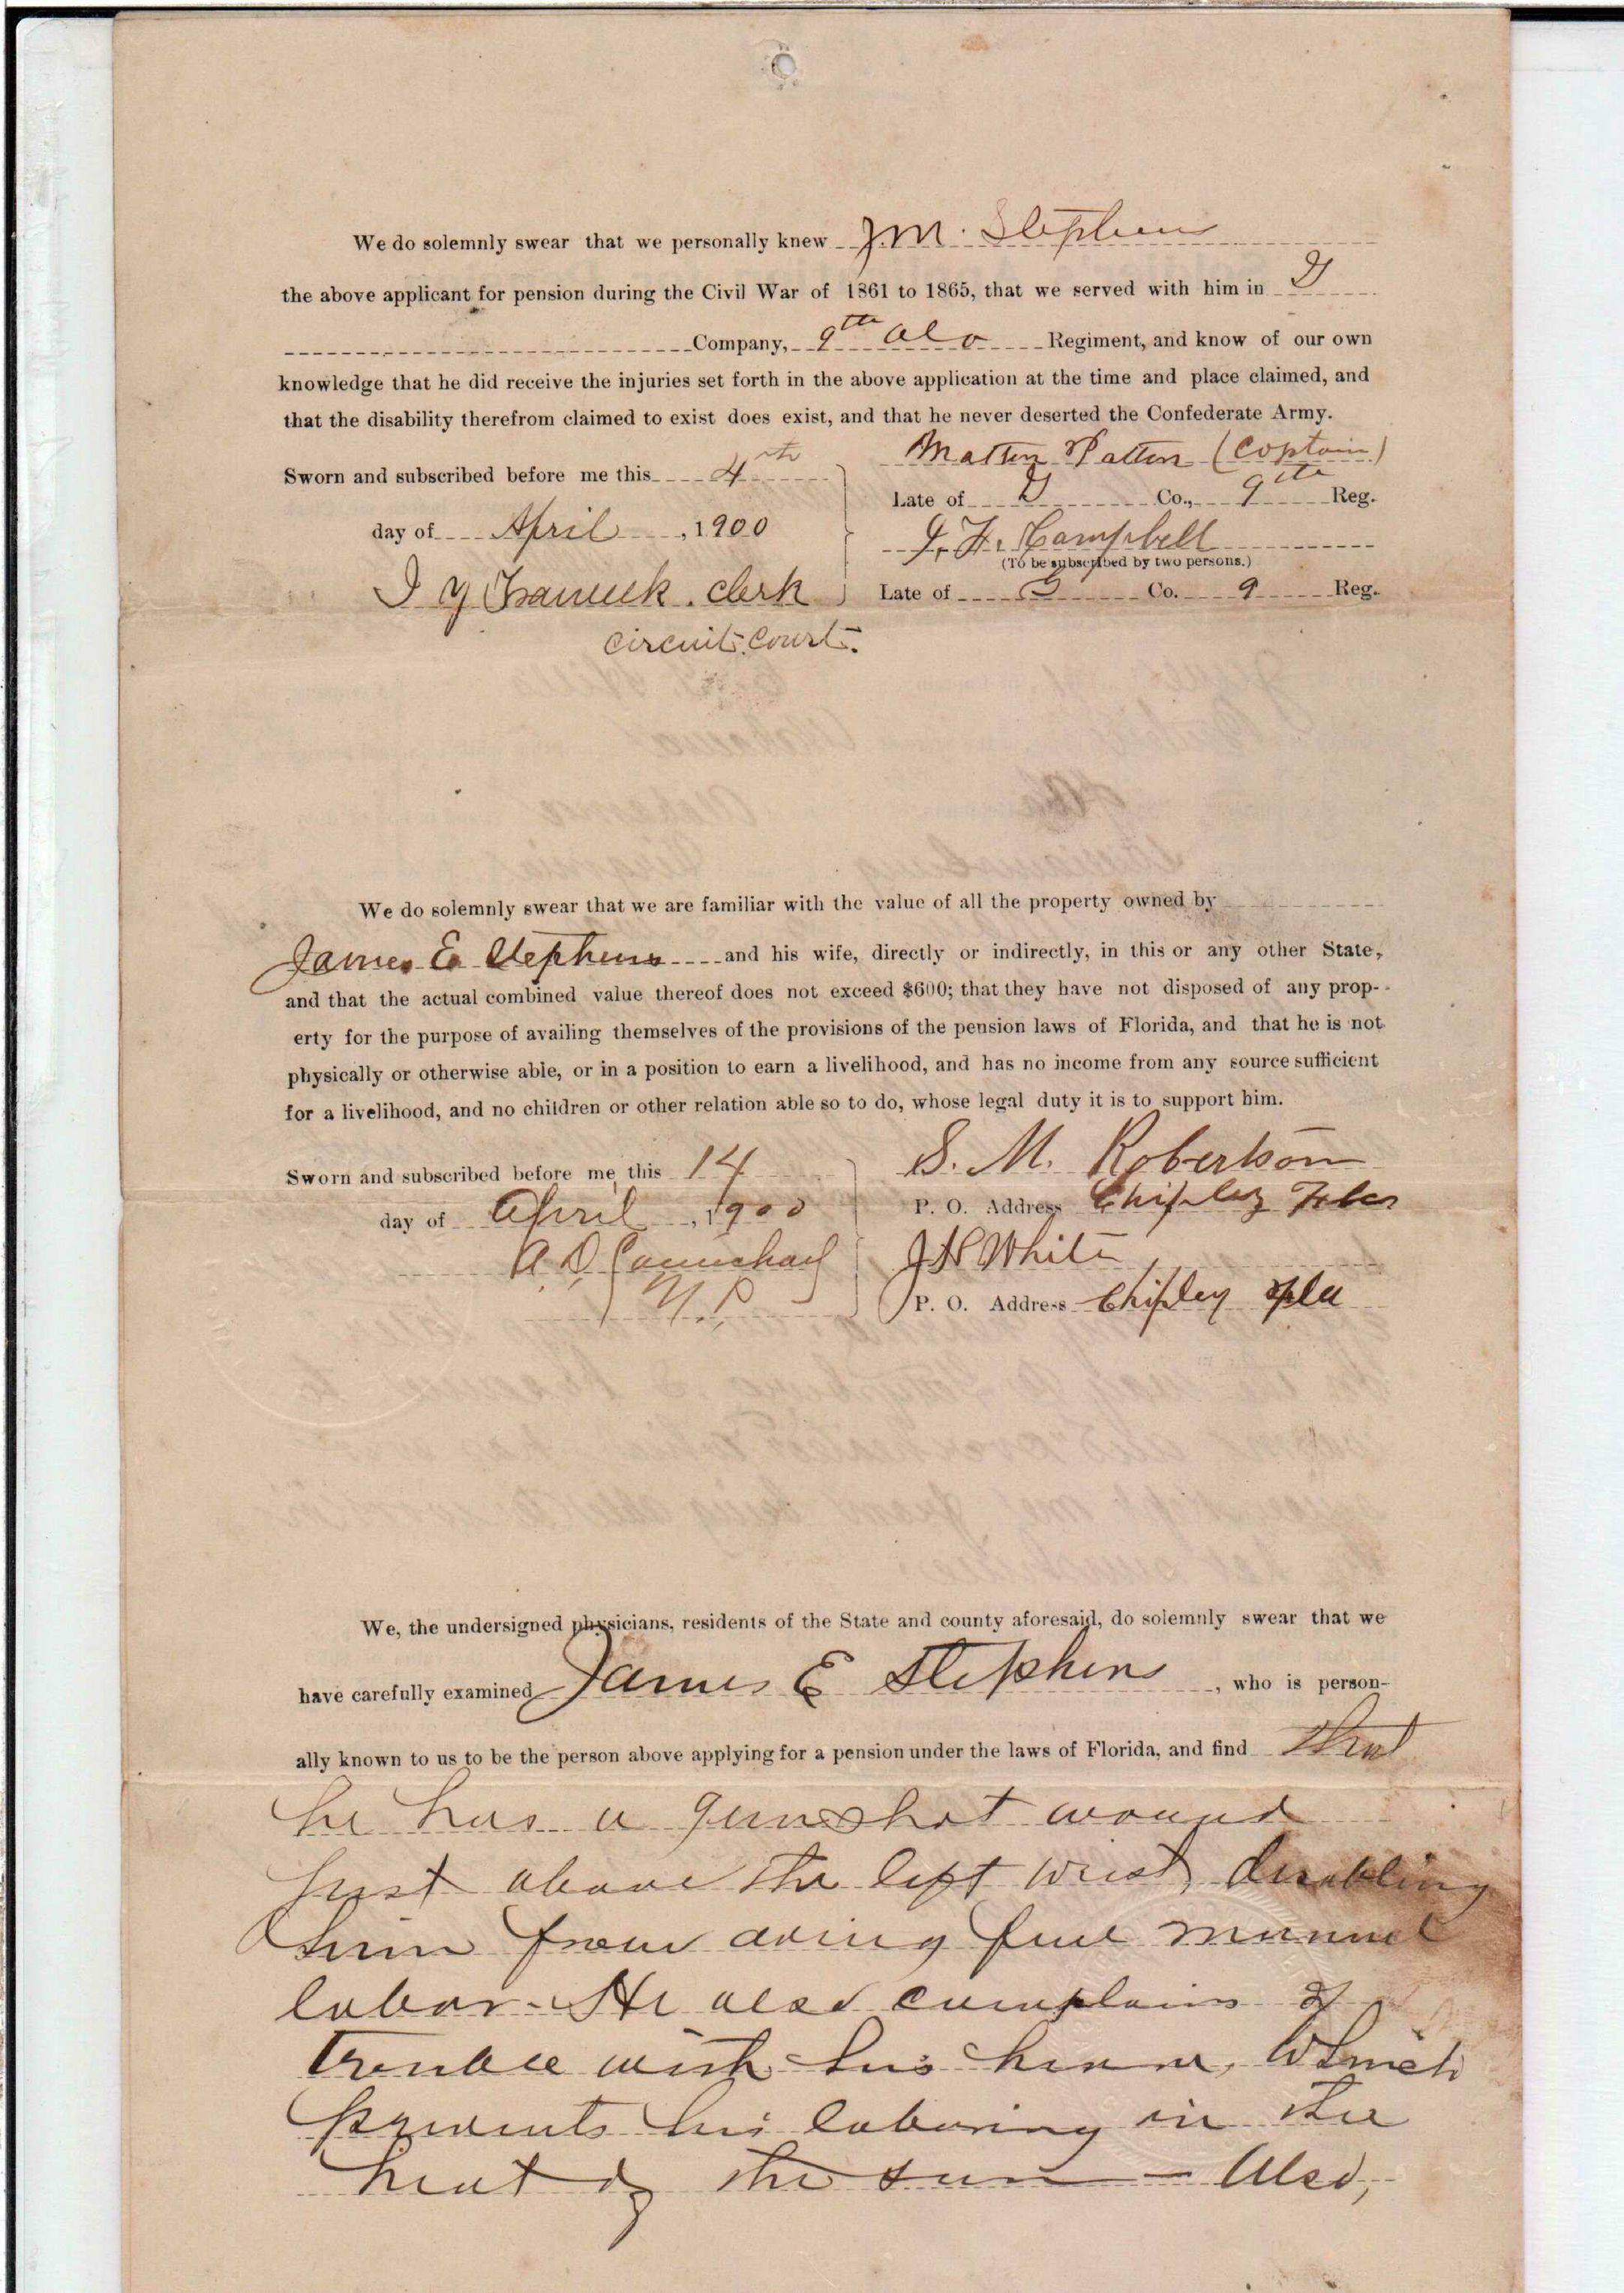 We do solemnly swear that we personally knew J.M. Stephens
the above applicant for pension during the Civil War of 1861 to 1865, that we served with him in G
Company, 9th Ala Regiment, and know of our own
knowledge that he did receive the injuries set forth in the above application at the time and place claimed, and
that the disability therefrom claimed to exist does exist, and that he never deserted the Confederate Army.
Patton (Captain)
Sworn and subscribed before me this 4th
Late of G Co., 9th Reg.
day of April, 1900
Campbell
(To be subscribed by two persons.)
clerk
Late of G Co. 9 Reg.
circuit court.
We do solemnly swear that we are familiar with the value of all the property owned by
James E Stephens and his wife, directly or indirectly, in this or any other State,
and that the actual combined value thereof does not exceed $600; that they have not disposed of any prop-
erty for the purpose of availing themselves of the provisions of the pension laws of Florida, and that he is not
physically or otherwise able, or in a position to earn a livelihood, and has no income from any source sufficient
for a livelihood, and no children or other relation able so to do, whose legal duty it is to support him.
Sworn and subscribed before me this 14
S. M. Robertson
day of April, 1900
P. O. Address Chipley
A. D. Carmichael
J H White
N. P.
P. O. Address Chipley Fla
We, the undersigned physicians, residents of the State and county aforesaid, do solemnly swear that we
have carefully examined James E Stephens, who is person-
ally known to us to be the person above applying for a pension under the laws of Florida, and find that
he has a gunshot wound
just above the left wrist, disabling
him from doing full manual
labor - He also complains of
trouble with his which
prevents his laboring in the
heat of the sun — Also,